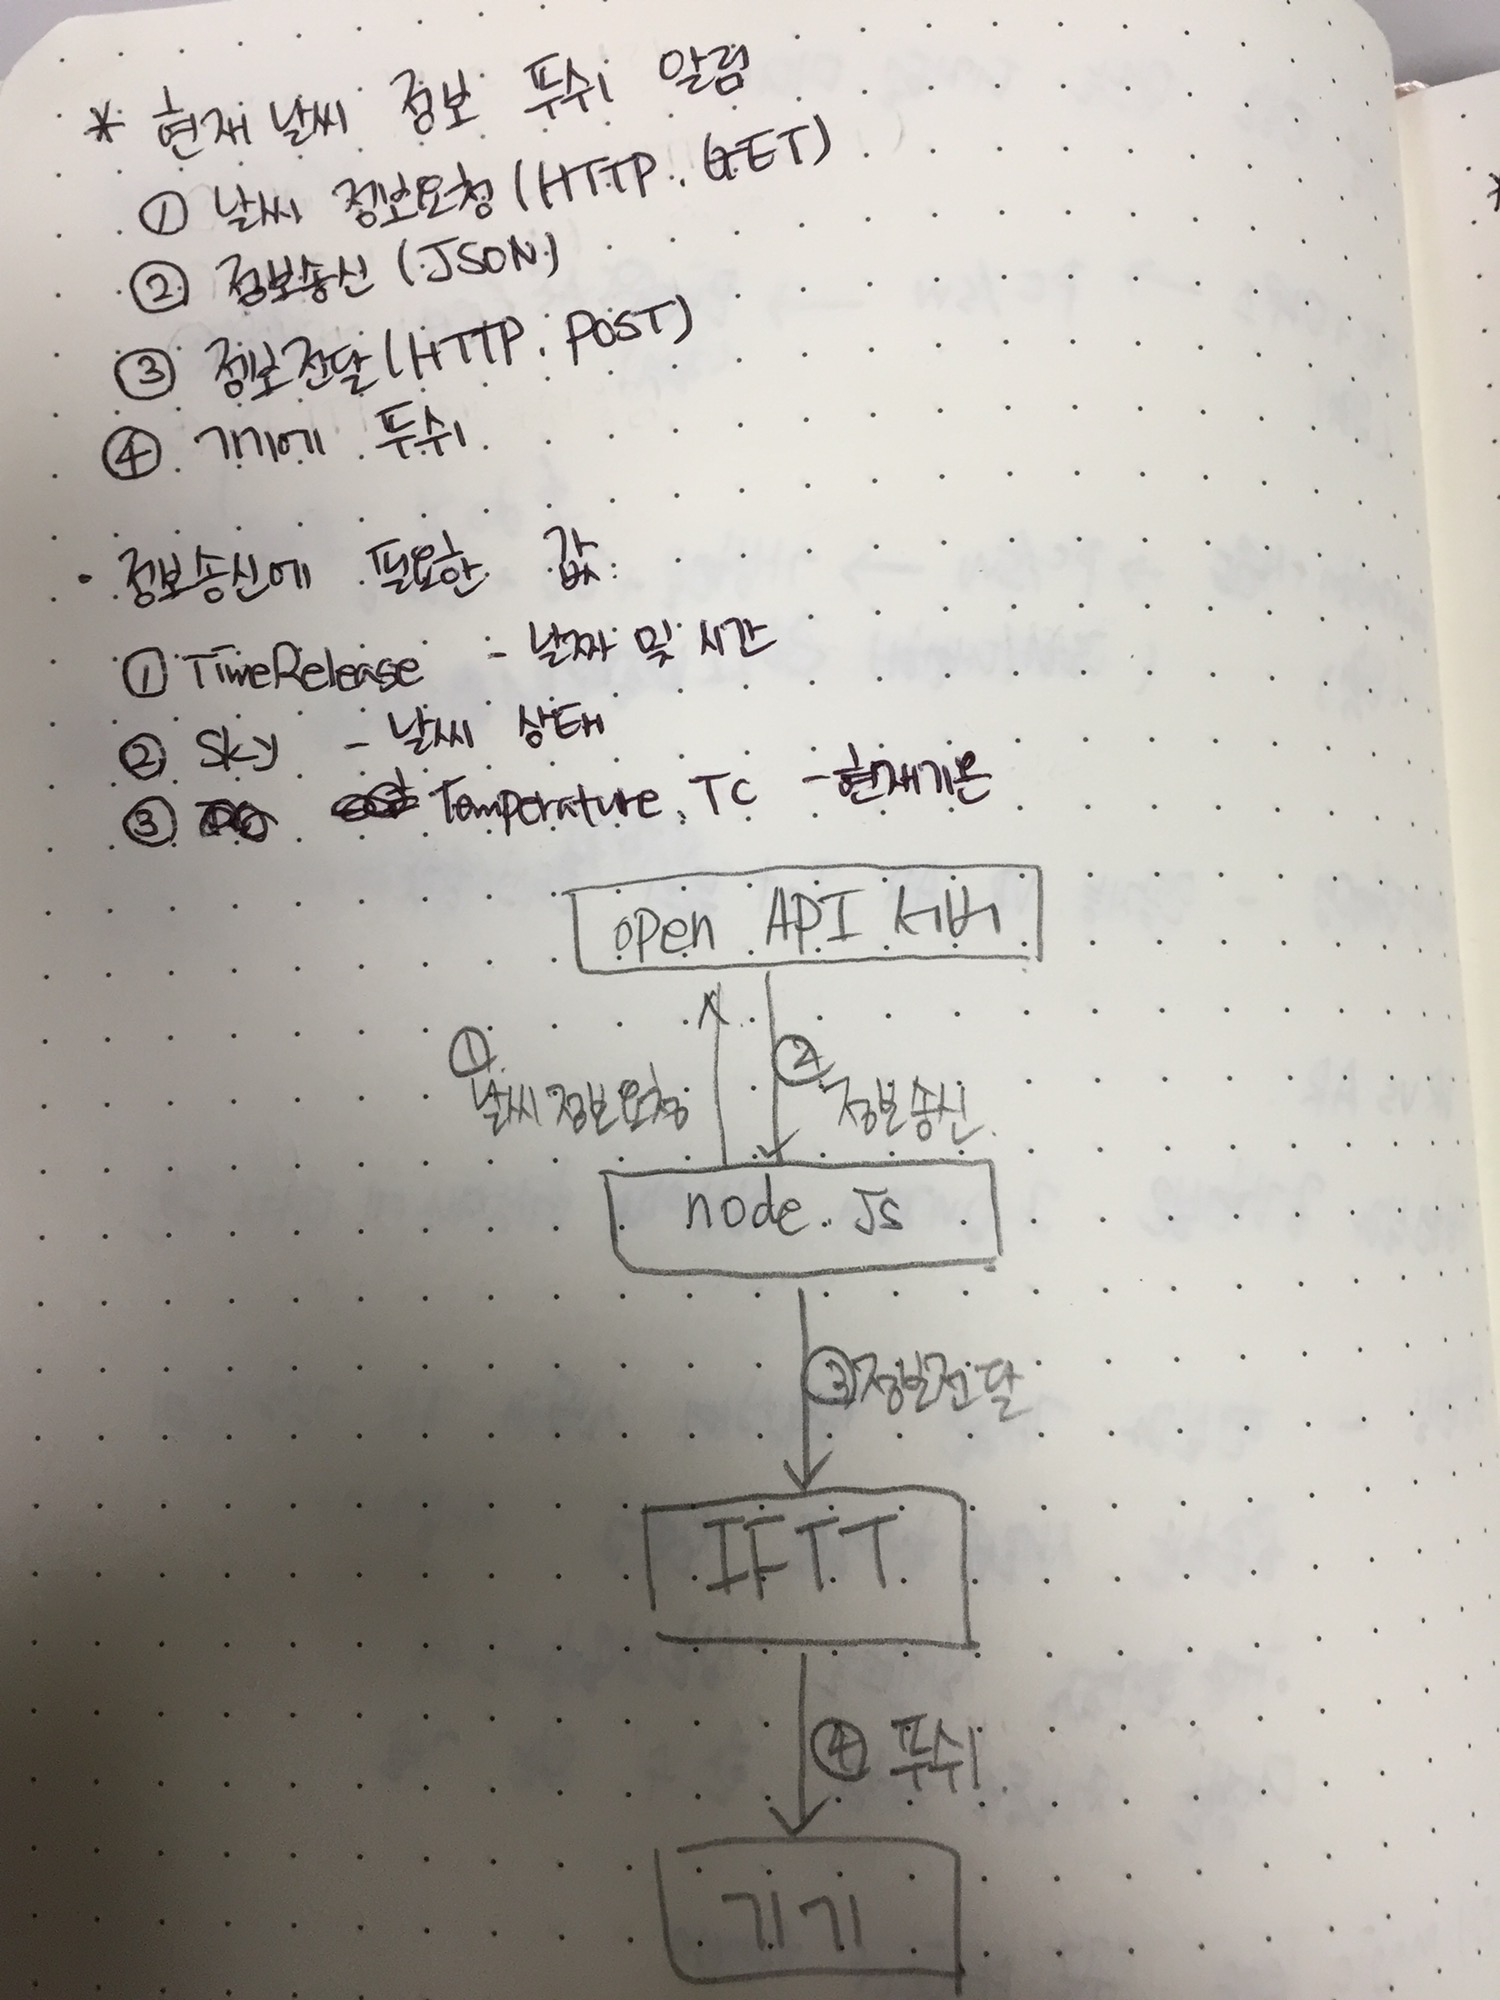 * 현재 날씨 정보 푸쉬 알림
① 날씨 정보요청 (HTTP. GET)
② 정보송신 (JSON)
③ 정보전달 (HTTP. POST)
④ 기기에 푸쉬
· 정보송신에 필요한 값
① TimeRelease - 날짜 및 시간
② Sky - 날씨 상태
③ Temperature. Tc - 현재기온
open API 서버
① ②
날씨정보요청 정보송신
node.Js
③ 정보전달
IFTT
④ 푸쉬
기기